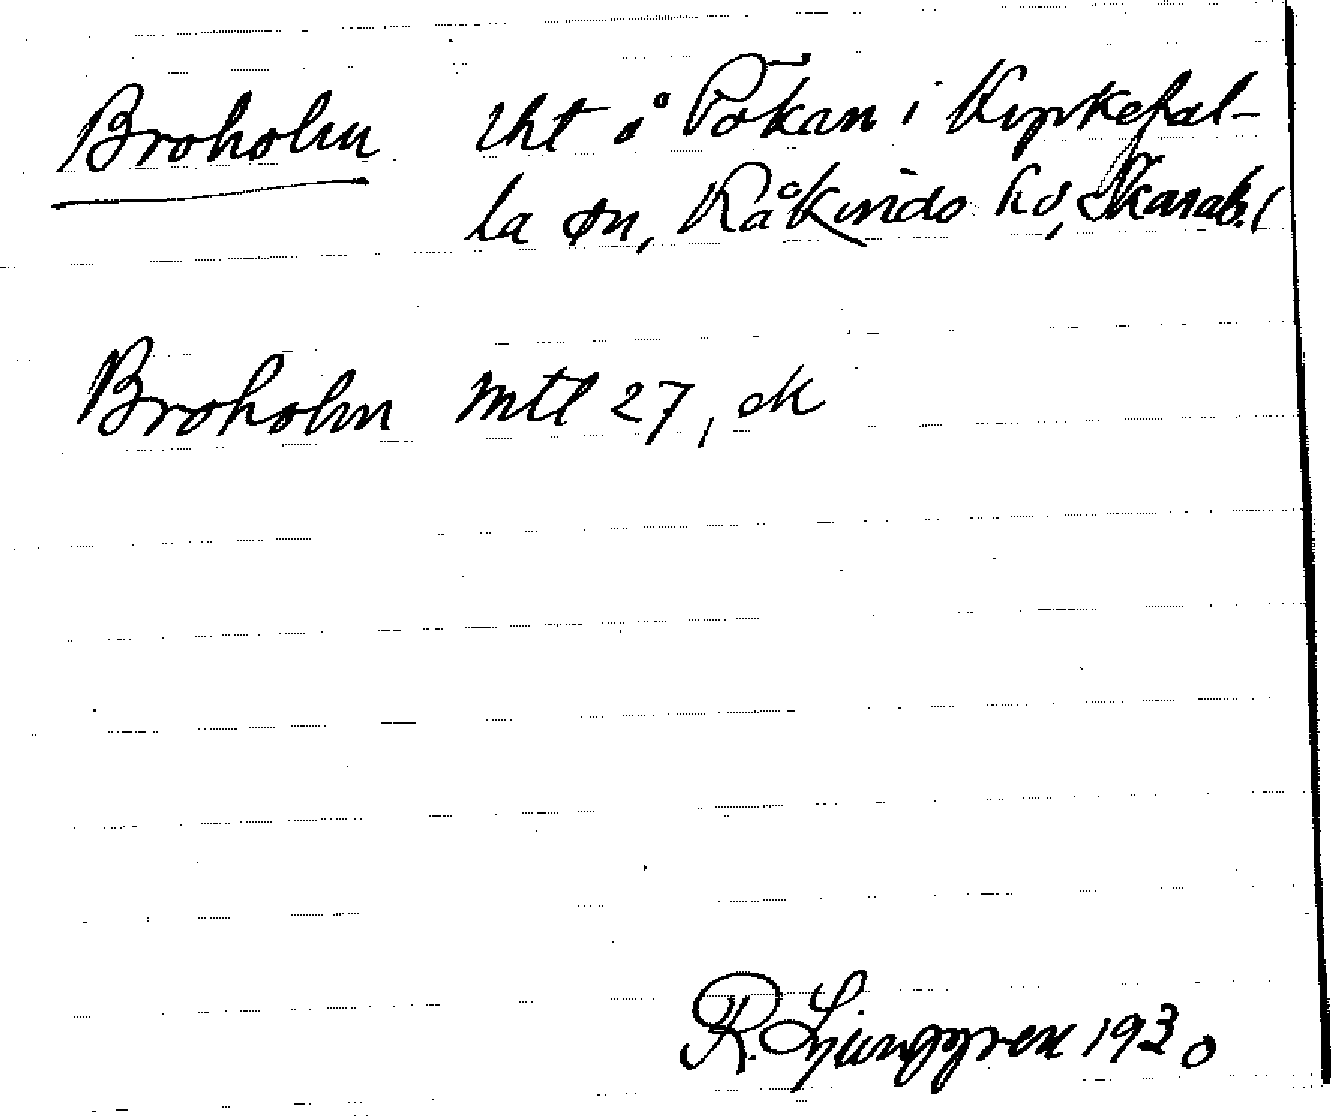 Broholm lht å Tokan i Kyrkefal-
la sn, Kåkinds hd, Skarab. l
Broholm mtl 27, ek
R. Ljunggren 1930